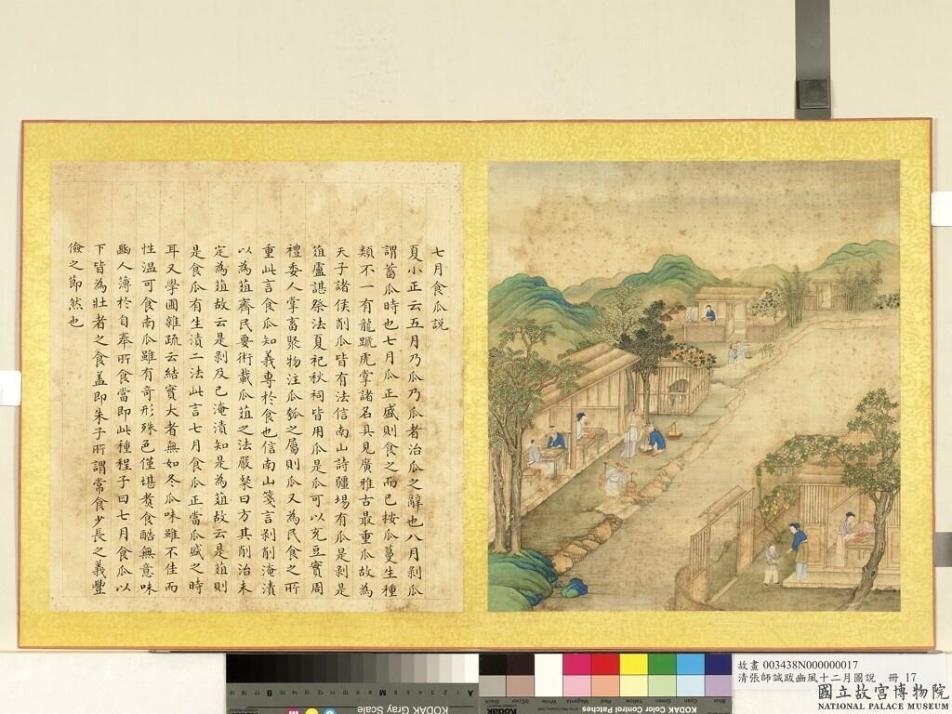 七月食瓜説
夏小正云五月乃瓜乃瓜者治瓜之辭也八月剥瓜
謂蓄瓜時也七月瓜正盛則食之而已按瓜蔓生種
類不一有龍蹏虎掌諸名具見廣雅古最重瓜故為
天子諸侯削瓜皆有法信南山詩疆埸有瓜是剥是
菹廬諶祭法夏祀秋祠皆用瓜是瓜可以充豆實周
禮委人掌畜聚物注瓜瓠之屬則瓜又為民食之所
重此言食瓜知義專於食也信南山箋言剥削淹漬
以為菹齊民要術載瓜菹之法嚴粲曰方其削治未
定為菹故云是剥及已淹漬知是為菹故云是菹則
是食瓜有生漬二法此言七月食瓜正當瓜盛之時
耳又學圃雜疏云結實大者無如冬瓜味雖不佳而
性温可食南瓜雖有奇形殊色僅堪煑食酷無意味
豳人簿於自奉所食當即此種程子曰七月食瓜以
下皆為壯者之食盖即朱子所謂常食少長之義豐
儉之節然也
故畫 003438N000000017
清張師誠跋豳風十二月圖説 冊 17
國立故宮博物院
NATIONAL PALACE MUSEUM
KODAK Gray Scale
KODAK Color Control Patches